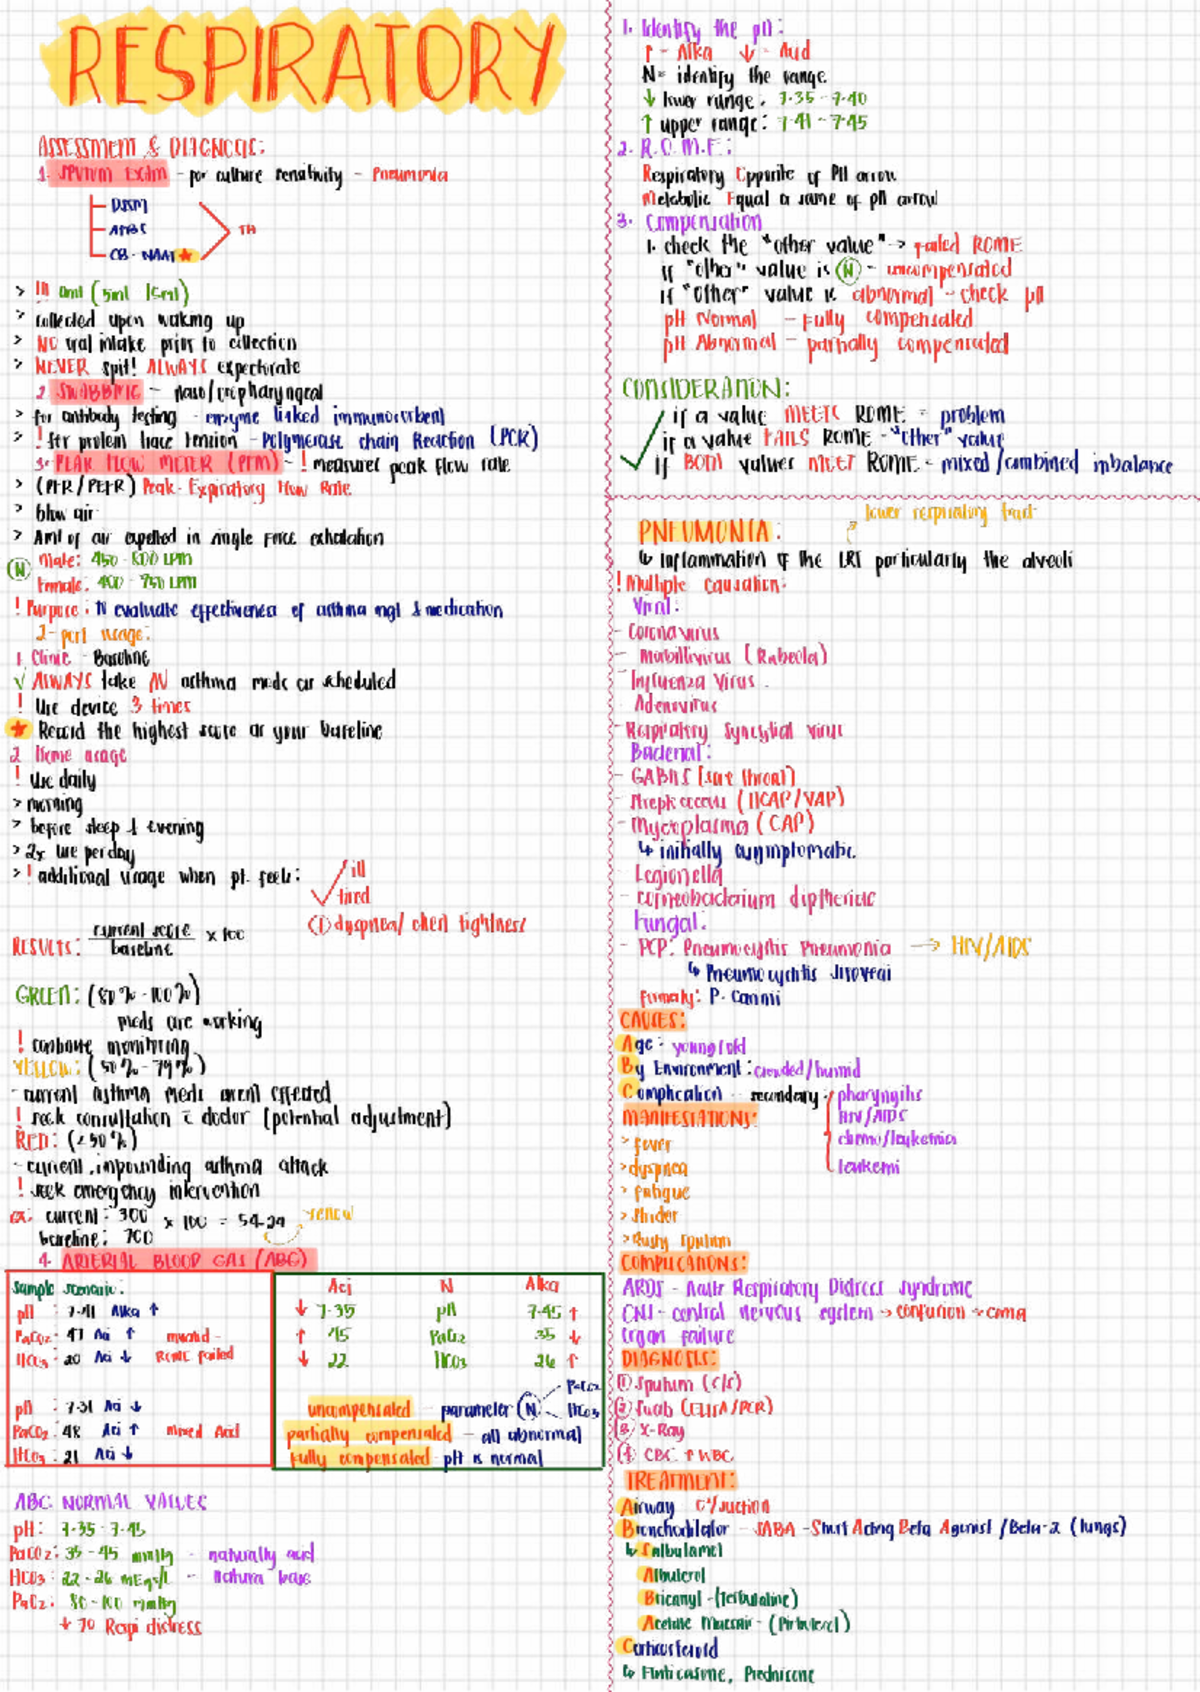 RESPIRATORY
ASSESSMENT & DIAGNOSIS:
1. SPUTUM EXAM - for culture sensitivity - Pneumonia
DSSM
AFBS
TB
CB-NAAT
collected upon waking up
NO oral intake prior to collection
NEVER spit! ALWAYS expectorate
2. SWABBING - naso/oropharyngeal
for antibody testing - enzyme linked immunosorbent
! for protein trace tension - Polymerase chain Reaction (PCR)
3. PEAK FLOW METER (PFM) - ! measures peak flow rate
> (PFR/PEFR) Peak-Expiratory Flow Rate
> blow air
> Amt of air expelled in single force exhalation
(N) Male: 450-800 LPM
Female: 400-750 LPM
! Purpose: to evaluate effectiveness of asthma mgt & medication
2-part usage:
1. Clinic - Baseline
√ ALWAYS take AM asthma meds as scheduled
! Use device 3 times
★ Record the highest score as your baseline
2. Home usage
! Use daily
> morning
> before sleep & evening
> 2x use per day
> ! additional usage when pt. feels:
ill
tired
(!) dyspnea/chest tightness
RESULTS: current score / baseline x 100
GREEN: (80%-100%)
meds are working
! continue monitoring
YELLOW: (50%-79%)
- current asthma meds aren't effected
! seek consultation c̄ doctor (potential adjustment)
RED: (<50%)
- current, impounding asthma attack
! seek emergency intervention
ex: current: 300 x 100 = yellow
baseline: 700
4. ARTERIAL BLOOD GAS (ABG)
Sample scenario:
pH : 7.41 Alka ↑
PaCO2: 47 Aci ↑ mixed -
HCO3: 20 Aci ↓ ROME failed
pH : 7.31 Aci ↓
PaCO2: 48 Aci ↑ Mixed Acid
HCO3: 21 Aci ↓
Aci N Alka
↓ 7.35 pH 7.45 ↑
↑ 45 PaCO2 35 ↓
↓ 22 HCO3 26 ↑
PaCO2
uncompensated - parameter (N) HCO3
partially compensated - all abnormal
Fully compensated - pH is normal
ABG NORMAL VALUES
pH: 7.35-7.45
PaCO2: 35-45 mmHg - naturally acid
HCO3: 22-26 mEqs/L - natural base
PaO2: 80-100 mmHg
↓ 70 Respi distress
1. Identify the pH:
↑ - Alka ↓ - Acid
N= identify the range
↓ lower range: 7.35-7.40
↑ upper range: 7.41-7.45
2. R.O.M.E:
Respiratory Opposite of PH arrow
Metabolic Equal or same of pH arrow
3. Compensation
1. check the "other value" -> failed ROME
if "other" value is (N) - uncompensated
if "other" value is abnormal - check pH
pH Normal - Fully compensated
pH Abnormal - partially compensated
CONSIDERATION:
if a value MEETS ROME = problem
if a value FAILS ROME - "other" value
if BOTH values MEET ROME - mixed/combined imbalance
lower respiratory tract
PNEUMONIA:
↳ Inflammation of the LRT particularly the alveoli
! Multiple causation:
Viral:
- Coronavirus
- Mobillivirus (Rubeola)
Influenza Virus
Adenovirus
- Respiratory Syncytial virus
Bacterial:
- GABHS (sore throat)
- Strep coccus (HCAP/VAP)
- Mycoplasma (CAP)
↳ initially asymptomatic
- Legionella
- corneobacterium diptheriae
Fungal:
- PCP: Pneumocystis Pneumonia → HIV/AIDS
↳ Pneumocystitis Jiroveai
formerly: P. Carinii
CAUSES:
Age: young/old
By Environment: crowded/humid
Complication - secondary: pharyngitis
HIV/AIDS
chemo/leukemia
leukemi
MANIFESTATIONS:
> fever
> dyspnea
> fatigue
> Strider
> Rusty sputum
COMPLICATIONS:
ARDS - Acute Respiratory Distress syndrome
CNS - central nervous system → confusion → coma
Organ failure
DIAGNOSIS:
(1) Sputum (c/s)
(2) Swab (ELISA/PCR)
(3) X-Ray
(4) CBC ↑ WBC
TREATMENT:
Airway O2/suction
Bronchodilator - SABA - Short Acting Beta Agonist/Beta-2 (lungs)
↳ Salbutamol
Albuterol
Bricanyl - (Terbutaline)
Acetate Maxair - (Pirbuterol)
Corticosteroid
↳ Fluticasone, Prednisone